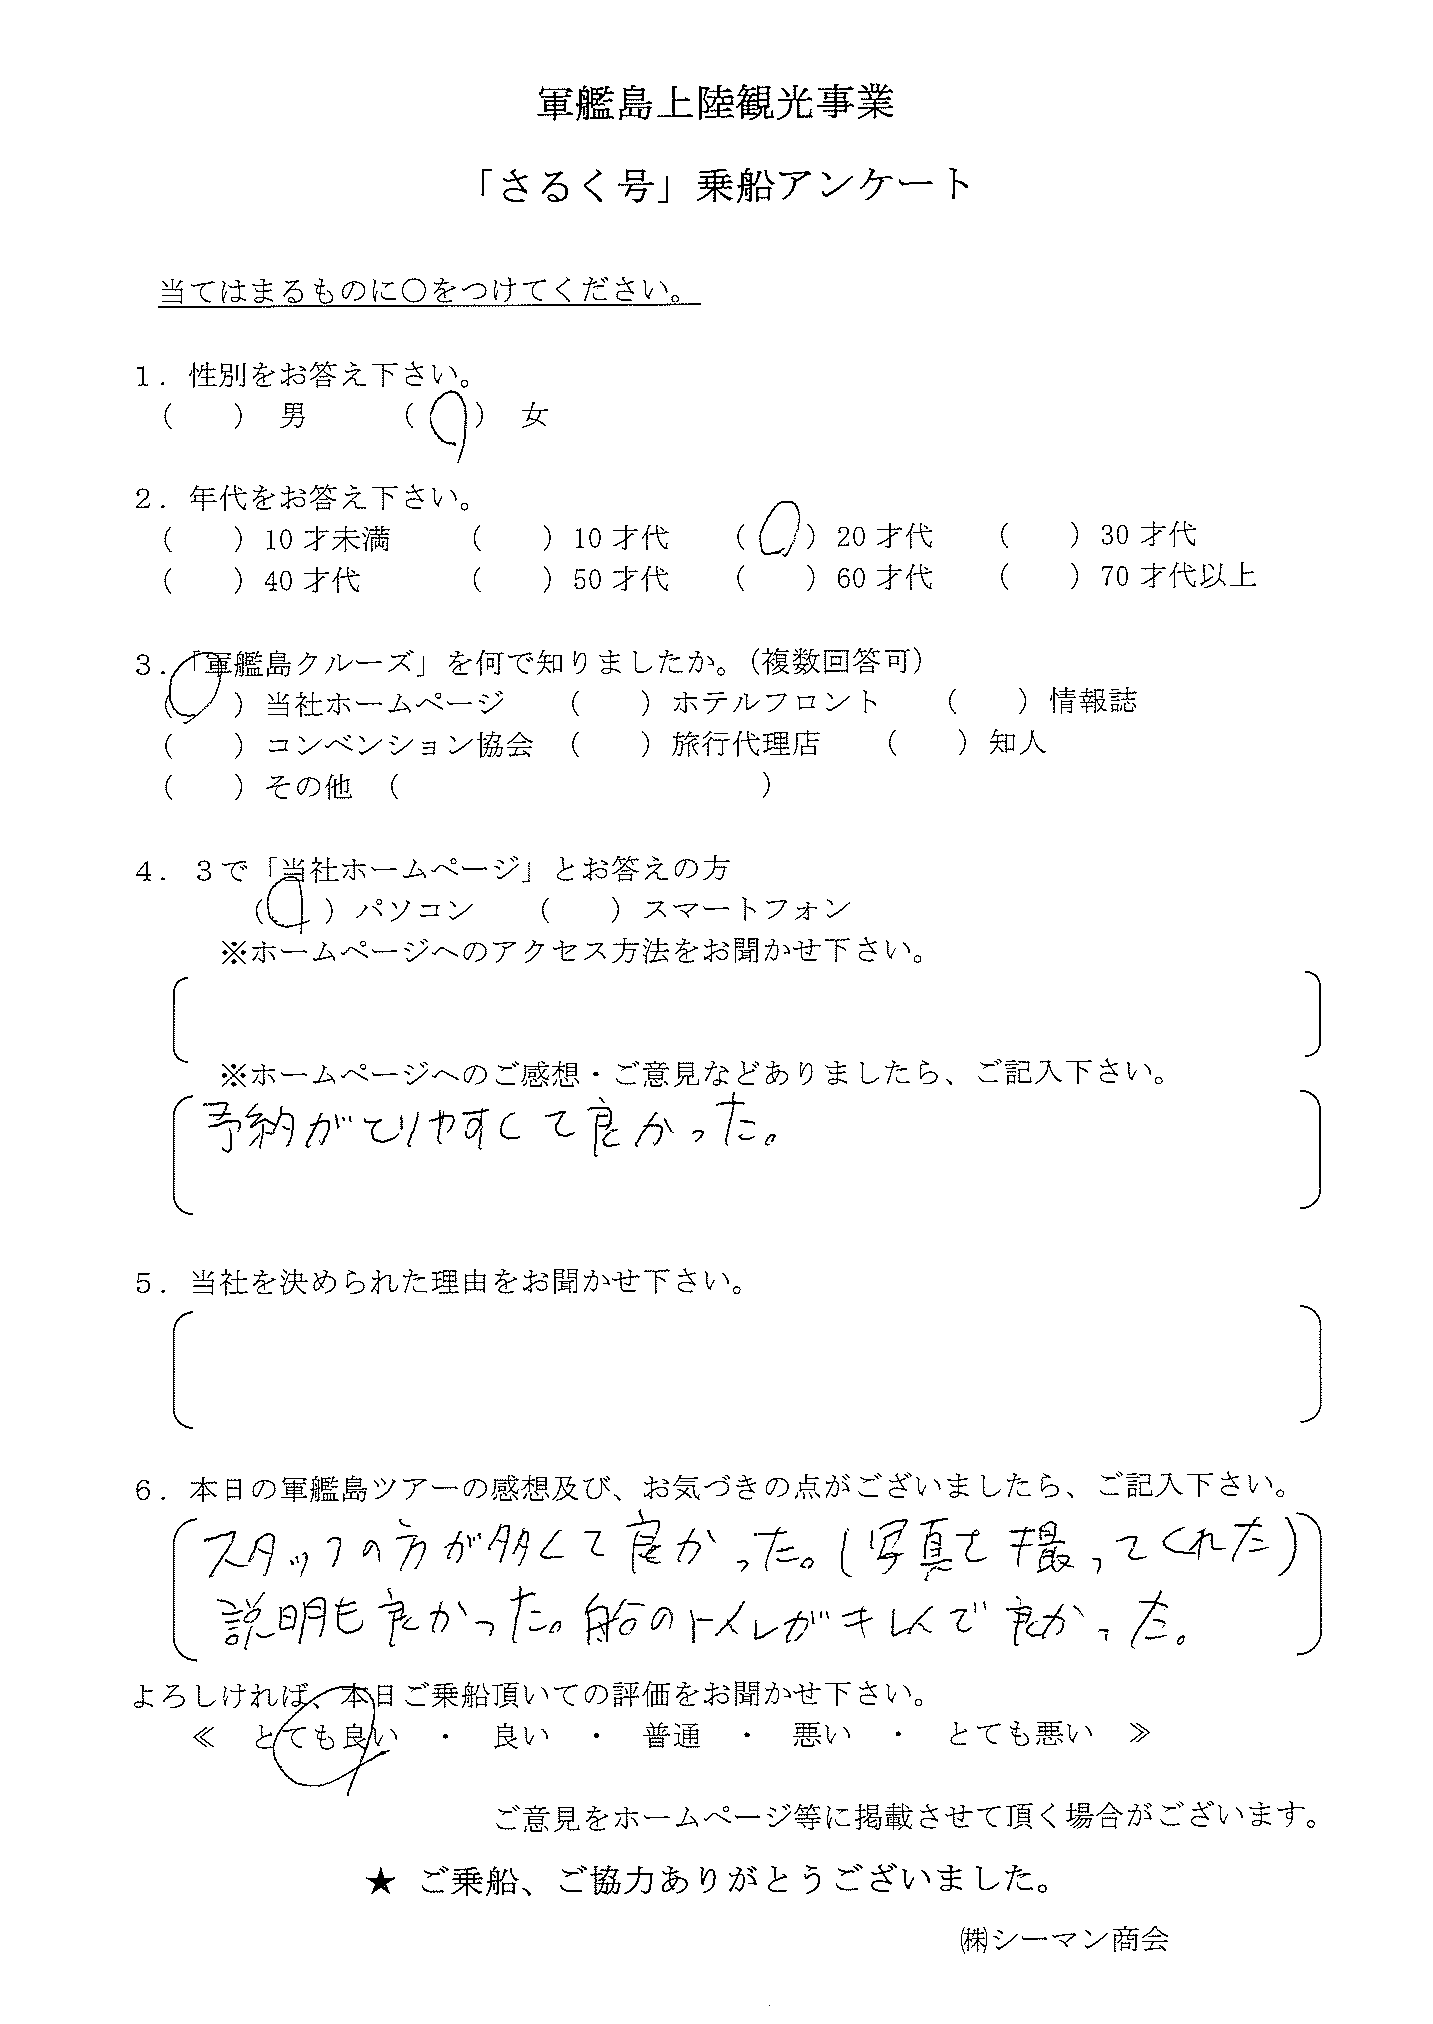 軍艦島上陸観光事業
「さるく号」乗船アンケート
当てはまるものに○をつけてください。
1．性別をお答え下さい。
（　　）　男　　　（○）　女
2．年代をお答え下さい。
（　　）10才未満　　（　　）10才代　　（○）20才代　　（　　）30才代
（　　）40才代　　（　　）50才代　　（　　）60才代　　（　　）70才代以上
3．「軍艦島クルーズ」を何で知りましたか。（複数回答可）
（○）当社ホームページ　　（　　）ホテルフロント　　（　　）情報誌
（　　）コンベンション協会　（　　）旅行代理店　　（　　）知人
（　　）その他　（　　　　　　　　　　　　）
4．3で「当社ホームページ」とお答えの方
（○）パソコン　　（　　）スマートフォン
※ホームページへのアクセス方法をお聞かせ下さい。
※ホームページへのご感想・ご意見などありましたら、ご記入下さい。
予約がとりやすくて良かった。
5．当社を決められた理由をお聞かせ下さい。
6．本日の軍艦島ツアーの感想及び、お気づきの点がございましたら、ご記入下さい。
スタッフの方が多くて良かった。（写真も撮ってくれた）
説明も良かった。船のトイレがキレイで良かった。
よろしければ、本日ご乗船頂いての評価をお聞かせ下さい。
≪　とても良い　・　良い　・　普通　・　悪い　・　とても悪い　≫
ご意見をホームページ等に掲載させて頂く場合がございます。
★　ご乗船、ご協力ありがとうございました。
㈱シーマン商会